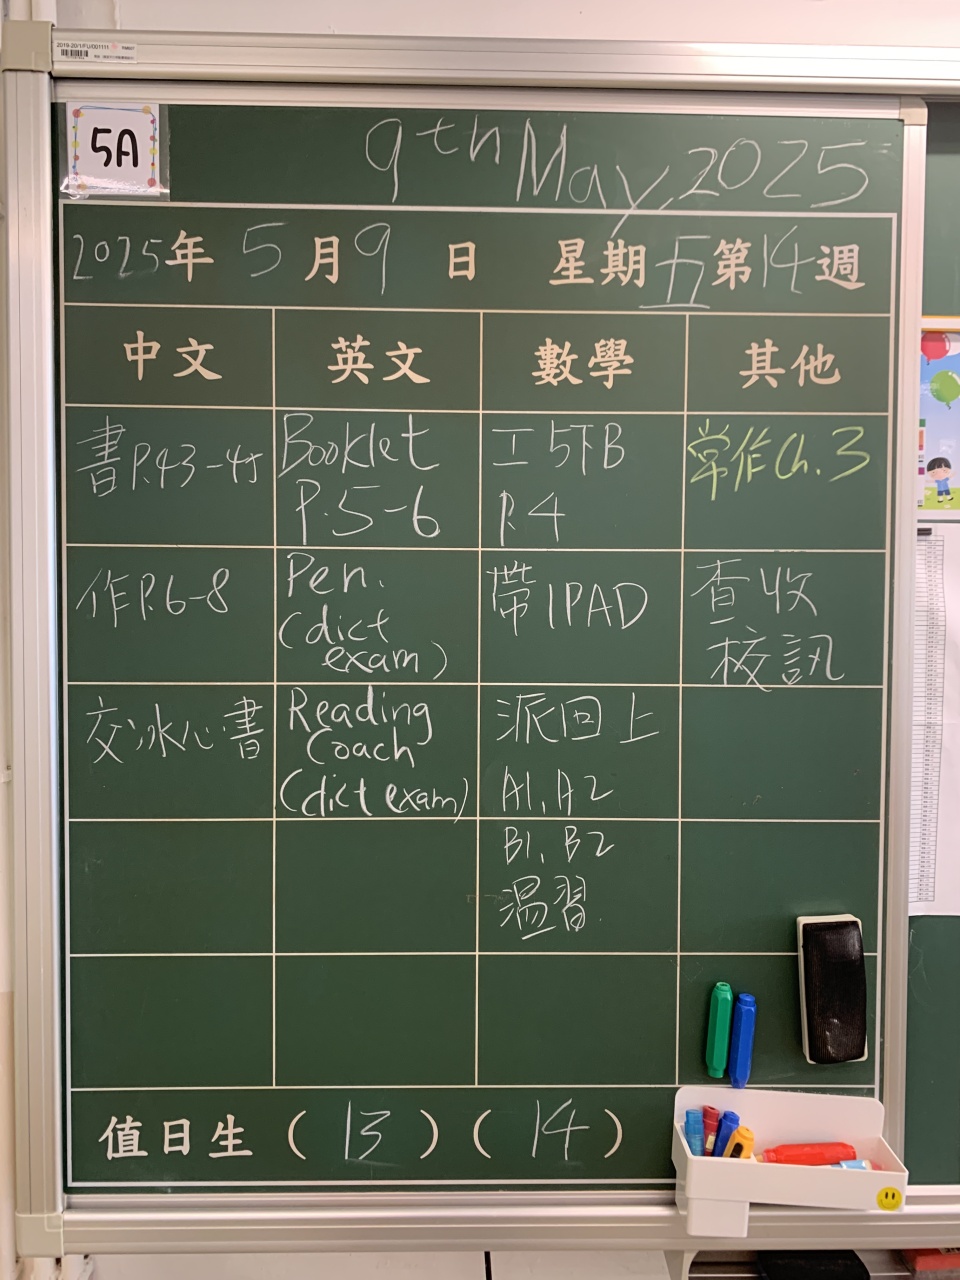 2019-20/1/FU/001111
5A
9th May, 2025
2025年 5月9日 星期五第14週
中文 英文 數學 其他
書P.43-45
Booklet
P.5-6
工5下B
P.4
常作Ch.3
作P.6-8
Pen.
(dict
exam)
帶IPAD
查收
校訊
交冰心書
Reading
Coach
(dict exam)
派回上
A1, A2
B1, B2
溫習
值日生(13)(14)